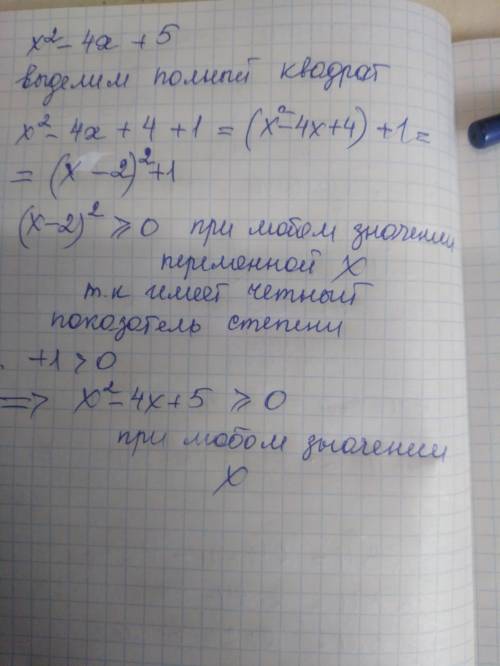 x² - 4x + 5
выделим полный квадрат
x² - 4x + 4 + 1 = (x² - 4x + 4) + 1 =
= (x - 2)² + 1
(x - 2)² ⩾ 0 при любом значении
переменной X
т.к имеет четный
показатель степени
+1 > 0
=> x² - 4x + 5 ⩾ 0
при любом значении
X